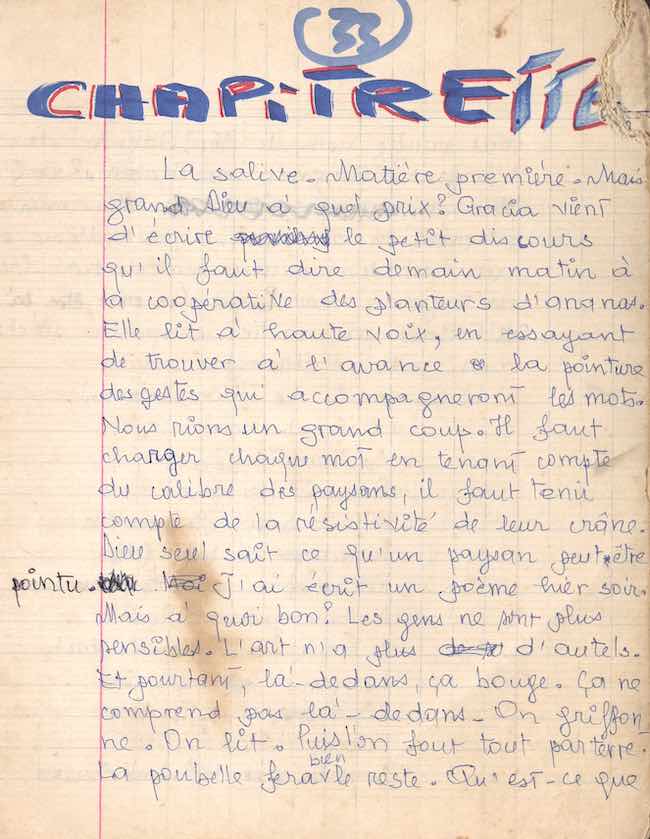 33
CHAPITRETTE
La salive. Matière première. Mais
grand Dieu à quel prix? Gracia vient
d'écrire le petit discours
qu'il faut dire demain matin à
la coopérative des planteurs d'ananas.
Elle lit à haute voix, en essayant
de trouver à l'avance la pointure
des gestes qui accompagneront les mots.
Nous rions un grand coup. Il faut
charger chaque mot en tenant compte
du calibre des paysans, il faut tenir
compte de la résistivité de leur crâne.
Dieu seul sait ce qu'un paysan peut être
pointu. J'ai écrit un poème hier soir.
Mais à quoi bon? Les gens ne sont plus
sensibles. L'art n'a plus d'autels.
Et pourtant, là-dedans, ça bouge. Ça ne
comprend pas là-dedans. On griffon
ne. On lit. Puis l'on fout tout par terre.
La poubelle fera bien le reste. Qu'est-ce que